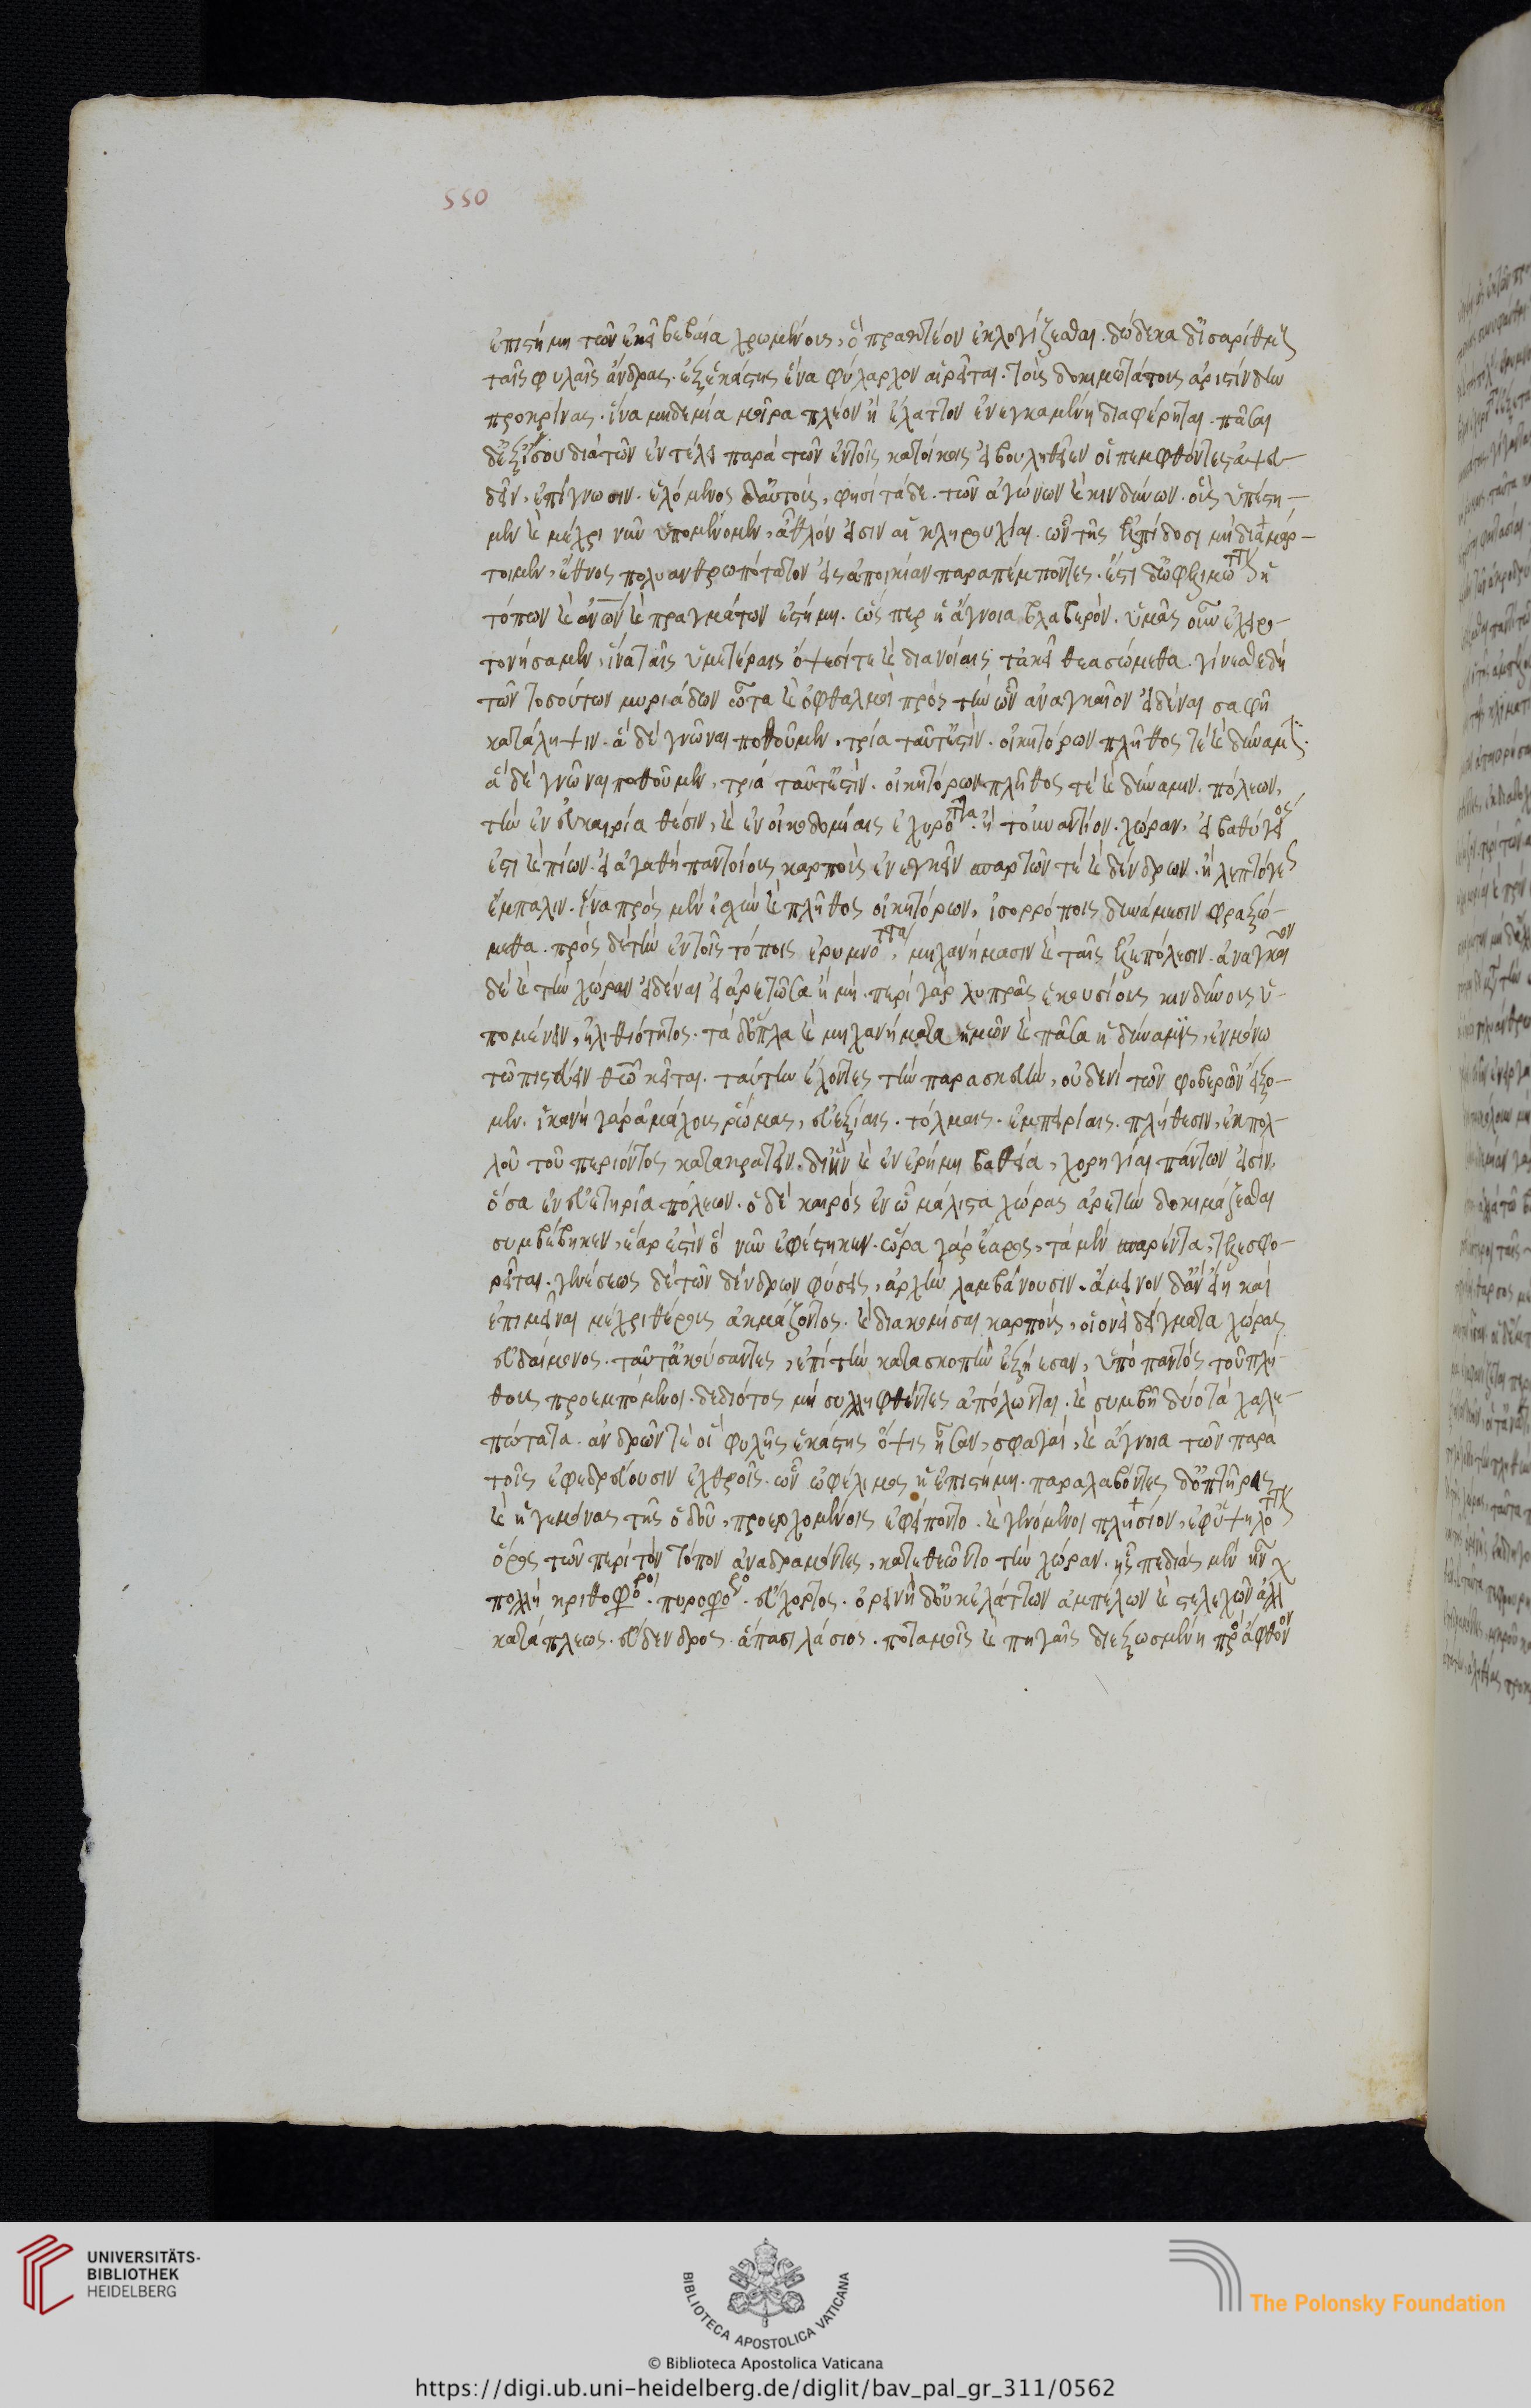 550
ἐπιστήμη τῶν ἐκεῖ βεβαία χρωμένους, ὃ πρακτέον ἐκλογίζεσθαι. δώδεκα δ' ἰσαρίθμους
ταῖς φυλαῖς ἄνδρας. ἐξ ἑκάστης ἕνα φύλαρχον αἱρεῖται. τοὺς δοκιμωτάτους ἀριστίνδην
προκρίνας. ἵνα μηδεμία μοῖρα πλέον ἢ ἔλαττον ἐνεγκαμένη διαφέρηται. πᾶσαι
δ' ἐξίσου διὰ τῶν ἐν τέλει παρὰ τῶν ἐν τοῖς κατοίκοις εἰ βουληθεῖεν οἱ πεμφθέντες ἀψευ-
δεῖν, ἐπίγνωσιν. ἑλόμενος δ' αὐτοὺς, φησὶ τάδε. τῶν ἀγώνων καὶ κινδύνων. οὓς ὑπέστη-
μεν καὶ μέχρι νῦν ὑπομένομεν, ἆθλόν εἰσιν αἱ κληρουχίαι. ὧν τῆς ἐλπίδος μὴ διαμάρ-
τοιμεν, ἔθνος πολυανθρωπότατον εἰς ἀποικίαν παραπέμποντες. ἔστι δ' ὠφελιμώτατον ἡ
τόπων καὶ ἀνων καὶ πραγμάτων ἐπιστήμη. ὥσπερ ἡ ἄγνοια βλαβερόν. ὑμᾶς οὖν ἐχειρο-
τονήσαμεν, ἵνα ταῖς ὑμετέραις ὄψεσί τε καὶ διανοίαις τἀκεῖ θεασώμεθα. γίνεσθε δὴ
τῶν τοσούτων μυριάδων ὦτα καὶ ὀφθαλμοὶ πρὸς τὴν ὧν ἀναγκαῖον εἰδέναι σαφῆ
κατάληψιν. ἃ δὲ γνῶναι ποθοῦμεν, τρία ταῦτ' ἐστίν. οἰκητόρων πλῆθος τὲ καὶ δύναμις.
ἃ δὲ γνῶναι ποθοῦμεν, τρία ταῦτ' ἐστίν. οἰκητόρων πλῆθος τὲ καὶ δύναμιν. πόλεων,
τὴν ἐν εὐκαιρία θέσιν, καὶ ἐν οἰκοδομίαις ἐχυρότητα. ἢ τοὐναντίον. χώραν, εἰ βαθύγειος
ἐστι καὶ πίων. εἰ ἀγαθὴ παντοίους καρποὺς ἐνεγκεῖν σπαρτῶν τὲ καὶ δένδρων. ἢ λεπτόγεως
ἔμπαλιν. ἵνα πρὸς μὲν ἰσχὺν καὶ πλῆθος οἰκητόρων, ἰσορρόποις δυνάμεσιν φραξώ-
μεθα. πρὸς δὲ τὴν ἐν τοῖς τόποις ἐρυμνότητα, μηχανήμασιν καὶ ταῖς ἑλεπόλεσιν. ἀναγκαῖον
δὲ καὶ τὴν χώραν εἰδέναι εἰ ἀρετῶσα ἢ μή. περὶ γὰρ λυπρᾶς ἑκουσίους κινδύνους ὑ-
πομένειν, ἠλιθιότητος. τὰ δ' ὅπλα καὶ μηχανήματα ἡμῶν καὶ πᾶσα ἡ δύναμις, ἐν μόνω
τῶ πιστεύειν θεῶ κεῖται. ταύτην ἔχοντες τὴν παρασκευὴν, οὐδενὶ τῶν φοβερῶν εἴξο-
μεν. ἱκανὴ γὰρ ἀμάχους ῥώμας, εὐεξίαις. τόλμαις. ἐμπειρίαις. πλήθεσιν, ἐκ πολ-
λοῦ τοῦ περιόντος κατακρατεῖν. δι' ἣν καὶ ἐν ἐρήμη βαθεία, χορηγίαι πάντων εἰσιν,
ὅσα ἐν εὐετηρία πόλεων. ὁ δὲ καιρὸς ἐν ὧ μάλιστα χώρας ἀρετὴν δοκιμάζεσθαι
συμβέβηκεν, ἔαρ ἐστὶν ὃ νῦν ἐφέστηκεν. ὥρα γὰρ ἔαρος, τὰ μὲν σπαρέντα, τελεσφο-
ρεῖται. γενέσεως δὲ τῶν δένδρων φύσεις, ἀρχὴν λαμβάνουσιν. ἄμεινον δ' ἂν εἴη καὶ
ἐπιμεῖναι μέχρι θέρους ἀκμάζοντος. καὶ διακομίσαι καρποὺς, οἱονεὶ δείγματα χώρας
εὐδαίμονος. ταῦτ' ἀκούσαντες, ἐπὶ τὴν κατασκοπὴν ἐξήεσαν, ὑπὸ παντὸς τοῦ πλή-
θους προεμπόμενοι. δεδιότος μὴ συλληφθέντες ἀπόλωνται. καὶ συμβῆ δύο τὰ χαλε-
πώτατα. ἀνδρῶν τὲ οἳ φυλῆς ἑκάστης ὄψις ἦσαν, σφαγαὶ, καὶ ἄγνοια τῶν παρὰ
τοῖς ἐφεδρεύουσιν ἐχθροῖς. ὧν ὠφέλιμος ἡ ἐπιστήμη. παραλαβόντες δ' ὀπτῆρας
καὶ ἡγεμόνας τῆς ὁδοῦ, προερχομένοις ἐφείποντο. καὶ γενόμενοι πλησίον, ἐφ' ὑψηλότατον
ὄρος τῶν περὶ τὸν τόπον ἀναδραμόντες, κατεθεῶντο τὴν χώραν. ἧς πεδιὰς μὲν ἦν
πολλὴ κριθοφόρος. πυροφόρος. εὔχορτος. ὀρεινὴ δ' οὐκ ἐλάττων ἀμπέλων καὶ στελεχῶν ἄλλων
κατάπλεως. εὔδενδρος. ἅπασι λάσιος. ποταμοῖς καὶ πηγαῖς διεζωσμένη πρὸς ἄφθονον
UNIVERSITÄTS-
BIBLIOTHEK
HEIDELBERG
BIBLIOTECA APOSTOLICA VATICANA
The Polonsky Foundation
© Biblioteca Apostolica Vaticana
https://digi.ub.uni-heidelberg.de/diglit/bav_pal_gr_311/0562